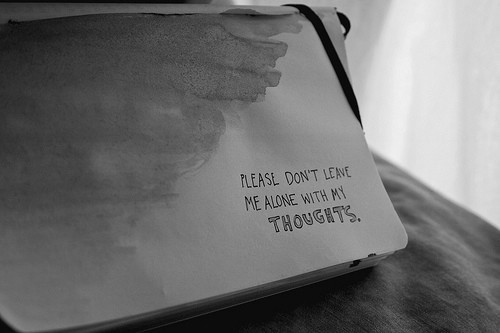 PLEASE DON'T LEAVE
ME ALONE WITH MY
THOUGHTS.